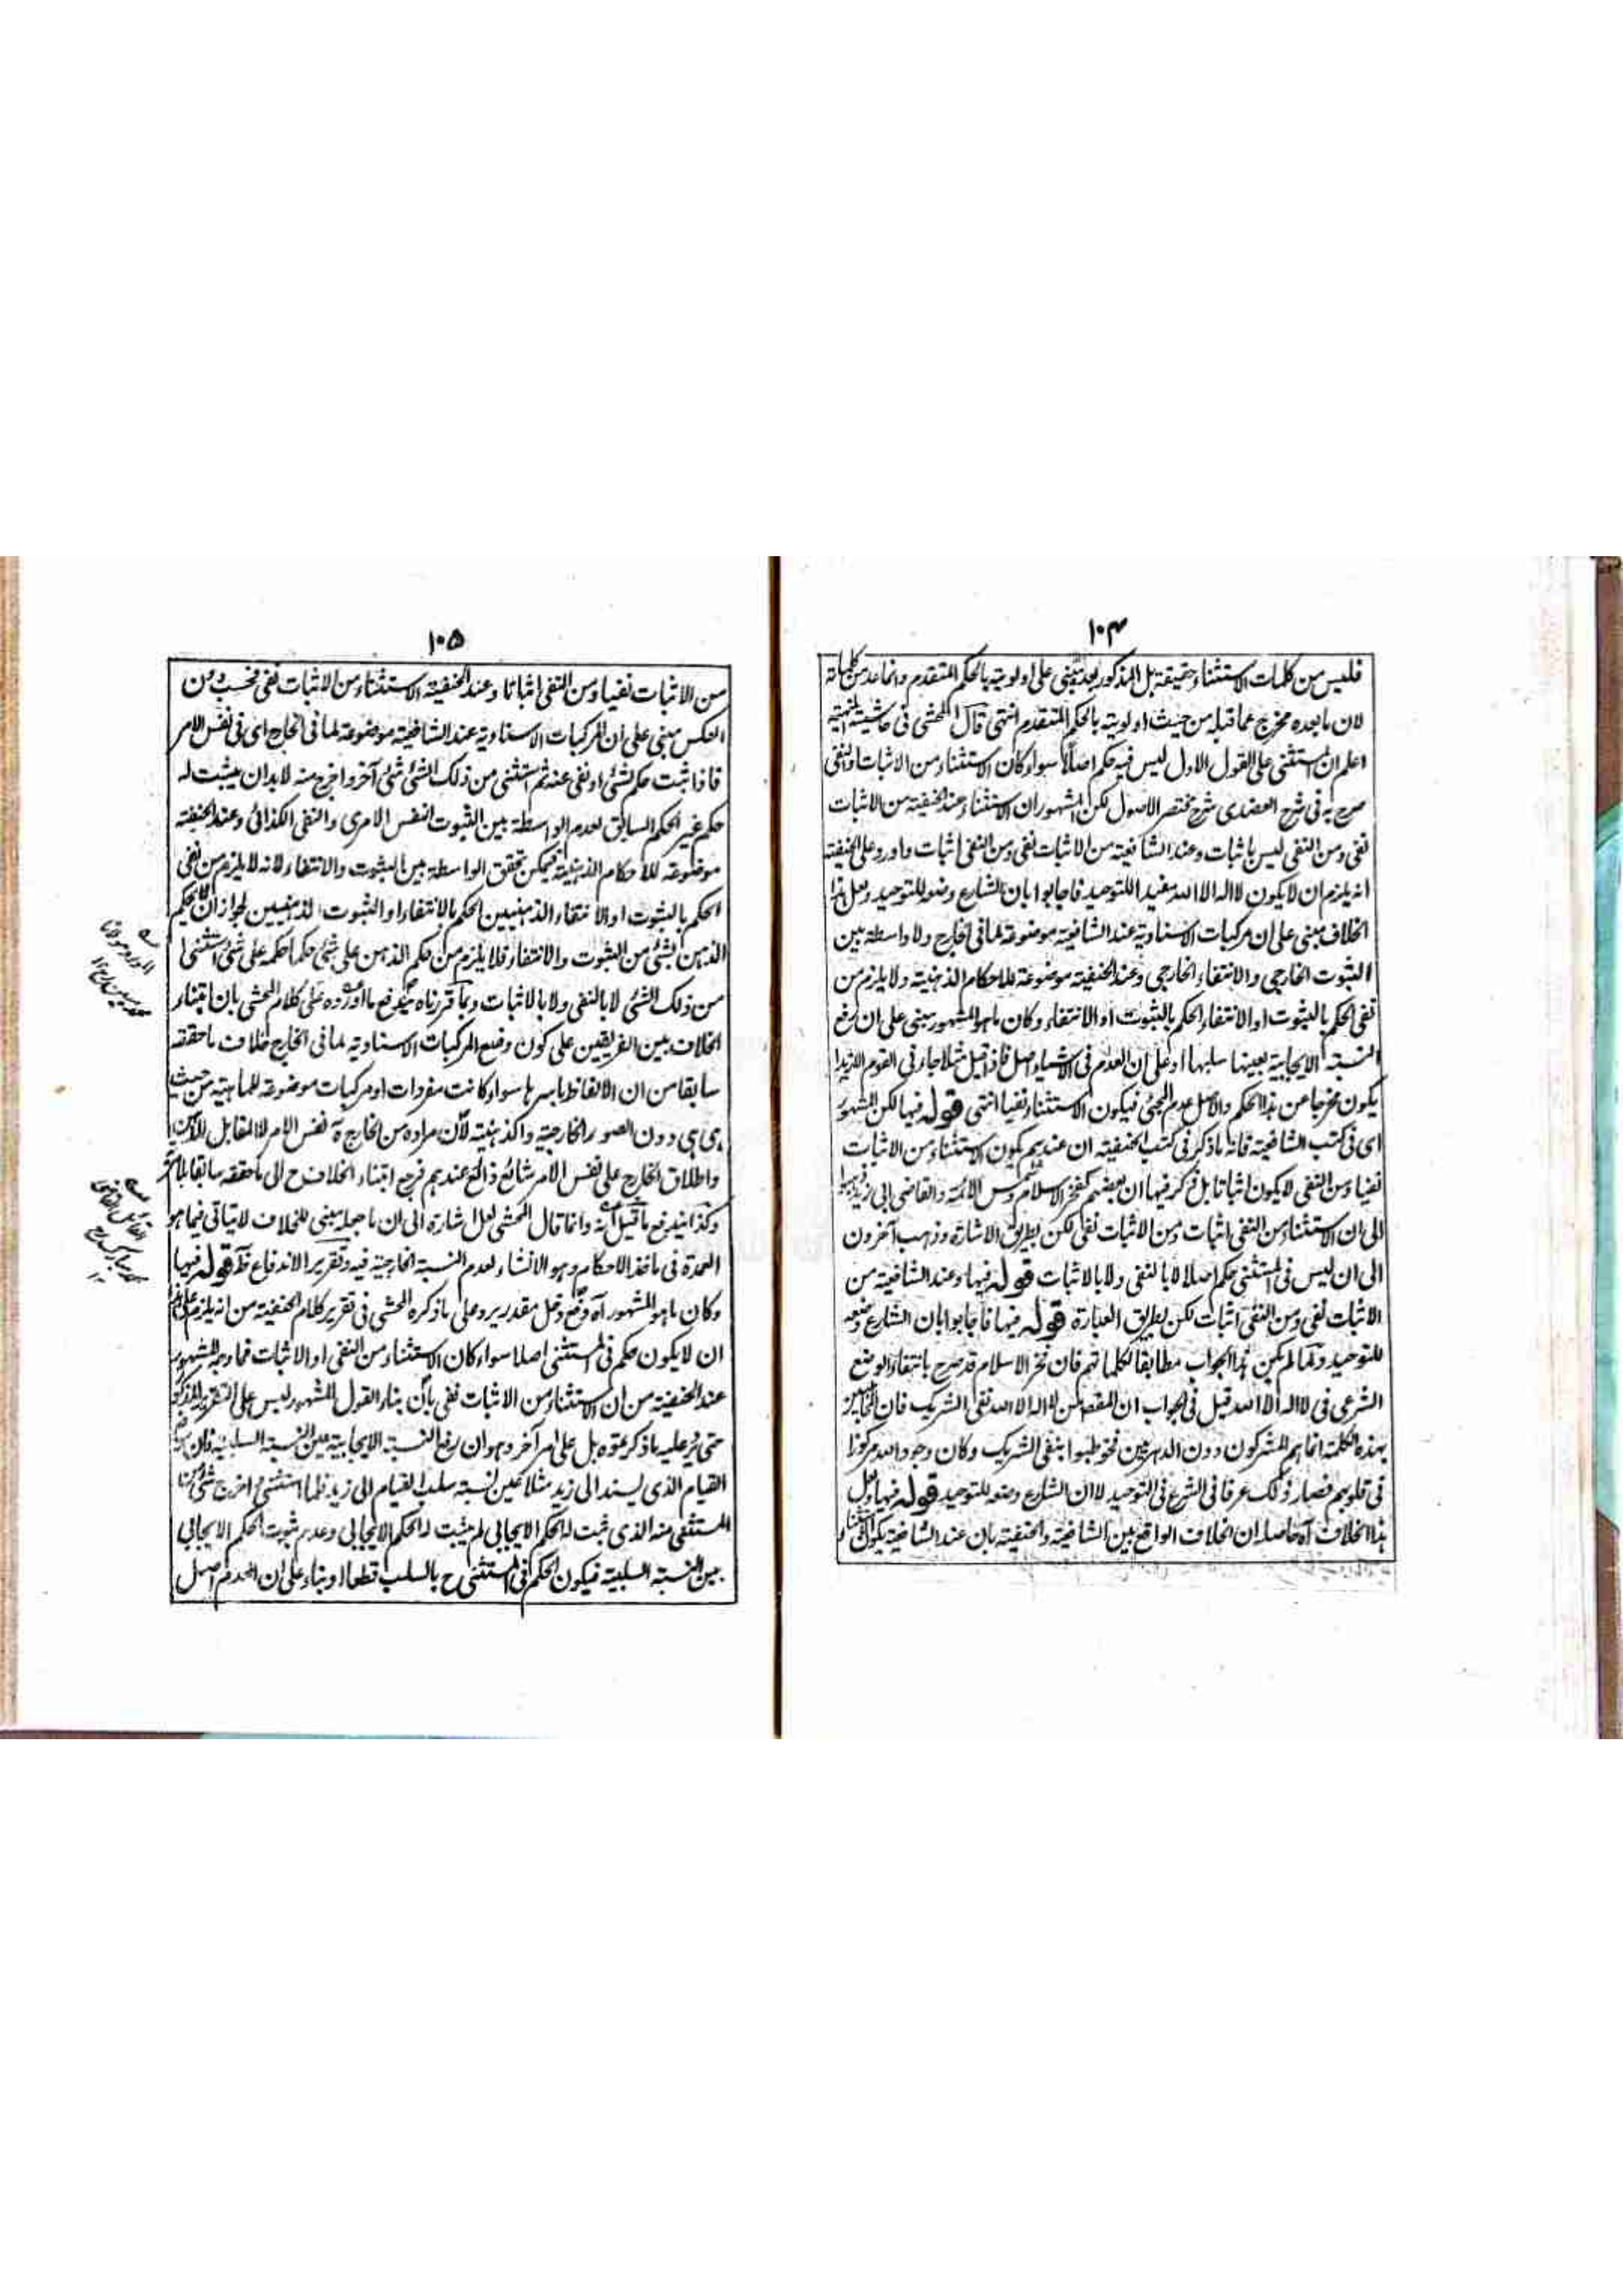 ١٠٤
فليس من كلمات الاستثناء حقيقة بل المذكور بعده على اولويته بالحكم المتقدم وانما عد من كلماته
لان ما بعده مخرج عما قبله من حيث اولويته بالحكم المتقدم انتهى قال المحشى فى حاشيته
اعلم ان المستثنى على القول الاول ليس فيه حكم اصلا سواء كان الاستثناء من الاثبات او النفى
صرح به فى شرح العضدى شرح مختصر الاصول لكن المشهور ان الاستثناء عند الحنفية من الاثبات
نفى ومن النفى ليس باثبات وعند الشافعية من الاثبات نفى ومن النفى اثبات واورد على الحنفية
انه يلزم ان لا يكون لا اله الا الله مفيدا للتوحيد فاجابوا بان الشارع وضعه للتوحيد ولعل هذا
الخلاف مبنى على ان مركبات الاسنادية عند الشافعية موضوعة لما فى الخارج ولا واسطة بين
الثبوت الخارجى والانتفاء الخارجى وعند الحنفية موضوعة للاحكام الذهنية ولا يلزم من
نفى الحكم بالثبوت او الانتفاء الحكم بالثبوت او الانتفاء وكان ما هو المشهور مبنى على ان رفع
النسبة الايجابية بعينها سلبها او على ان العدم فى الاشياء اصل فاذا قيل مثلا جاءنى القوم الا زيدا
يكون مخرجا من هذا الحكم والاصل عدم المجئ فيكون الاستثناء نفيا انتهى قوله فيها لكن المشهور
اى فى كتب الشافعية فانه ما ذكر فى كتب الحنفية ان عندهم يكون الاستثناء من الاثبات
نفيا ومن النفى لا يكون اثباتا بل ذكر فيها ان بعضهم كفخر الاسلام وشمس الائمة والقاضى ابى زيد ذهبوا
الى ان الاستثناء من النفى اثبات ومن الاثبات نفى لكن بطريق الاشارة وذهب آخرون
الى ان ليس فى المستثنى حكم اصلا لا بالنفى ولا بالاثبات قوله فيها وعند الشافعية من
الاثبات نفى ومن النفى اثبات لكن بطريق العبارة قوله فيها فاجابوا بان الشارع وضعه
للتوحيد ولما لم يكن هذا الجواب مطابقا لكلماتهم فان فخر الاسلام قد صرح بانتفاء الوضع
الشرعى فى لا اله الا الله قيل فى الجواب ان المقصود من لا اله الا الله نفى الشريك فان المخاطبين
بهذه الكلمة انما هم المشركون دون الدهريين فخوطبوا بنفى الشريك وكان وجود الله مركوزا
فى قلوبهم فصار ذلك عرفا فى الشرع فى التوحيد لا ان الشارع وضعه للتوحيد قوله فيها ولعل
هذا الخلاف آه حاصله ان الخلاف الواقع بين الشافعية والحنفية بان عند الشافعية يكون الاستثناء
١٠٥
من الاثبات نفيا ومن النفى اثباتا وعند الحنفية الاستثناء من الاثبات نفى فحسب دون
العكس مبنى على ان المركبات الاسنادية عند الشافعية موضوعة لما فى الخارج اى فى نفس الامر
فاذا ثبت حكم لشئ او نفى عنه ثم استثنى من ذلك الشئ شئ آخر واخرج منه لابد ان يثبت له
حكم غير الحكم السابق لعدم الواسطة بين الثبوت النفس الامرى والنفى الكذائى وعند الحنفية
موضوعة للاحكام الذهنية فيمكن تحقق الواسطة بين الثبوت والانتفاء لانه لا يلزم من نفى
الحكم بالثبوت او الانتفاء الذهنيين الحكم بالانتفاء او الثبوت الذهنيين لجواز ان لا يحكم
الذهن لشئ من الثبوت والانتفاء فلا يلزم من حكم الذهن على شئ حكما حكمه على شئ استثنى
من ذلك الشئ لا بالنفى ولا بالاثبات وبما قررناه يندفع ما اورده على كلام المحشى بان ابتناء
الخلاف بين الفريقين على كون وضع المركبات الاسنادية لما فى الخارج خلاف ما حققه
سابقا من ان الالفاظ باسرها سواء كانت مفردات او مركبات موضوعة للماهية من حيث
هى هى دون الصور الخارجية والذهنية لان مراده من الخارج نفس الامر لا المقابل للذهن
واطلاق الخارج على نفس الامر شائع ذائع عندهم فرجع ابتناء الخلاف ح الى ما حققه سابقا
وكذا يندفع ما قيل انه وانما قال المحشى لعل اشارة الى ان ما جعله مبنى للخلاف لا يتاتى فيما هو
العمدة فى ماخذ الاحكام وهو الانشاء لعدم النسبة الخارجية فيه وتقرير الاندفاع ظ قوله فيها
وكان ما هو المشهور آه دفع دخل مقدر يرد على ما ذكره المحشى فى تقرير كلام الحنفية من انه يلزم على هذا
ان لا يكون حكم فى المستثنى اصلا سواء كان الاستثناء من النفى او الاثبات فما وجه المشهور
عند الحنفية من ان الاستثناء من الاثبات نفى بان بناء القول المشهور ليس على التقرير المذكور
حتى يرد عليه ما ذكرتموه بل على امر آخر وهو ان رفع النسبة الايجابية عين النسبة السلبية فان
القيام الذى يسند الى زيد مثلا عين نسبة سلب القيام الى زيد فلما استثنى اخرج شئ من
المستثنى منه الذى ثبت له الحكم الايجابى لم يثبت له الحكم الايجابى وعدم ثبوت الحكم الايجابى
عين النسبة السلبية فيكون الحكم فى المستثنى ح بالسلب قطعا او بناء على ان العدم اصل